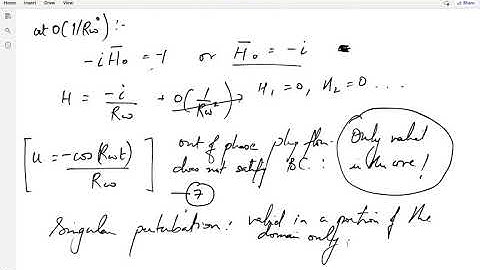 Home Insert Draw View
at O(1/Rω⁰) :-
-i H̄₀ = -1 or H̄₀ = -i
H = -i/Rω + O(1/Rω²) H₁ = 0, H₂ = 0 ...
[u = -cos(Rωt)/Rω] out of phase plug flow.
does not satisfy BC. :
7
Only valid
in the core!
Singular peturbation : valid in a portion of the
domain only.